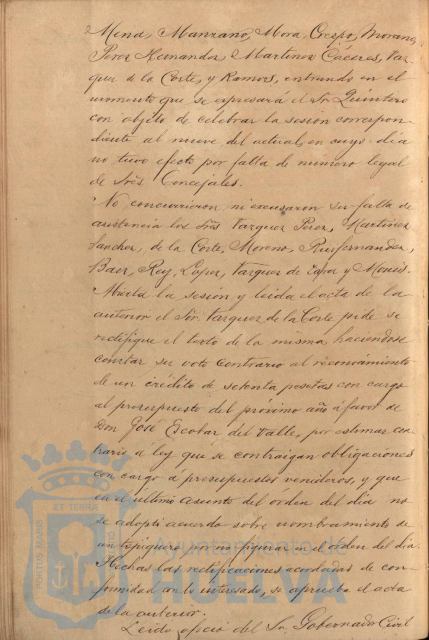 Mena, Manzano, Mora, Crespo, Morano,
Perez Hernandez, Martinez Cáceres, Vaz-
quez de la Corte, y Ramos, entrando en el
momento que se expresará el Sr. Quintero
con objeto de celebrar la sesion correspon-
diente al nueve del actual, en cuyo dia
no tuvo efecto por falta de número legal
de Srēs Concejales.
No concurrieron ni excusaron su falta de
asistencia los Srēs Vazquez Perez, Martinez
Sanchez, de la Corte, Moreno, Ruifernandez,
Baez, Rey, Lopez, Vazquez de Zapa y
Abierta la sesion y leida el acta de la
anterior el Sr. Vazquez de la Corte pide se
rectifique el texto de la misma haciendose
constar su voto contrario al reconocimiento
de un crédito de setenta pesetas con cargo
al presupuesto del próximo año á favor de
Don José Escobar del Valle, por estimar con-
trario a ley que se contraigan obligaciones
con cargo á presupuestos venideros, y que
en el último asunto del orden del dia no
se adoptó acuerdo sobre nombramiento de
un por no figurar en el orden del dia
Hechas las rectificaciones acordadas de con-
formidad con lo interesado, se aprueba el acta
de la anterior.
Leido oficio del Sr. Gobernador Civil
PORTUS MARIS ET TERRAE
Ayuntamiento de
HUELVA